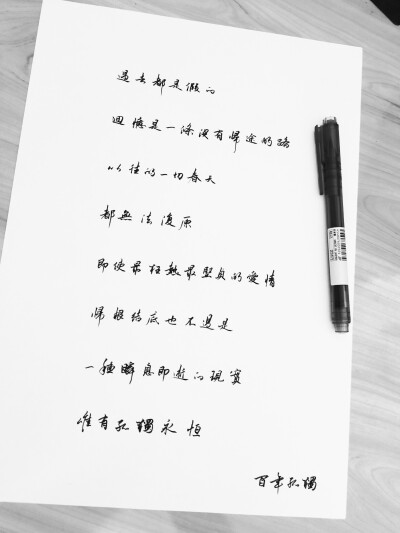 過去都是假的
迴憶是一條沒有歸途的路
以往的一切春天
都無法復原
即使最狂熱最堅貞的愛情
歸根結底也不過是
一種瞬息即逝的現實
唯有孤獨永恒
百年孤獨